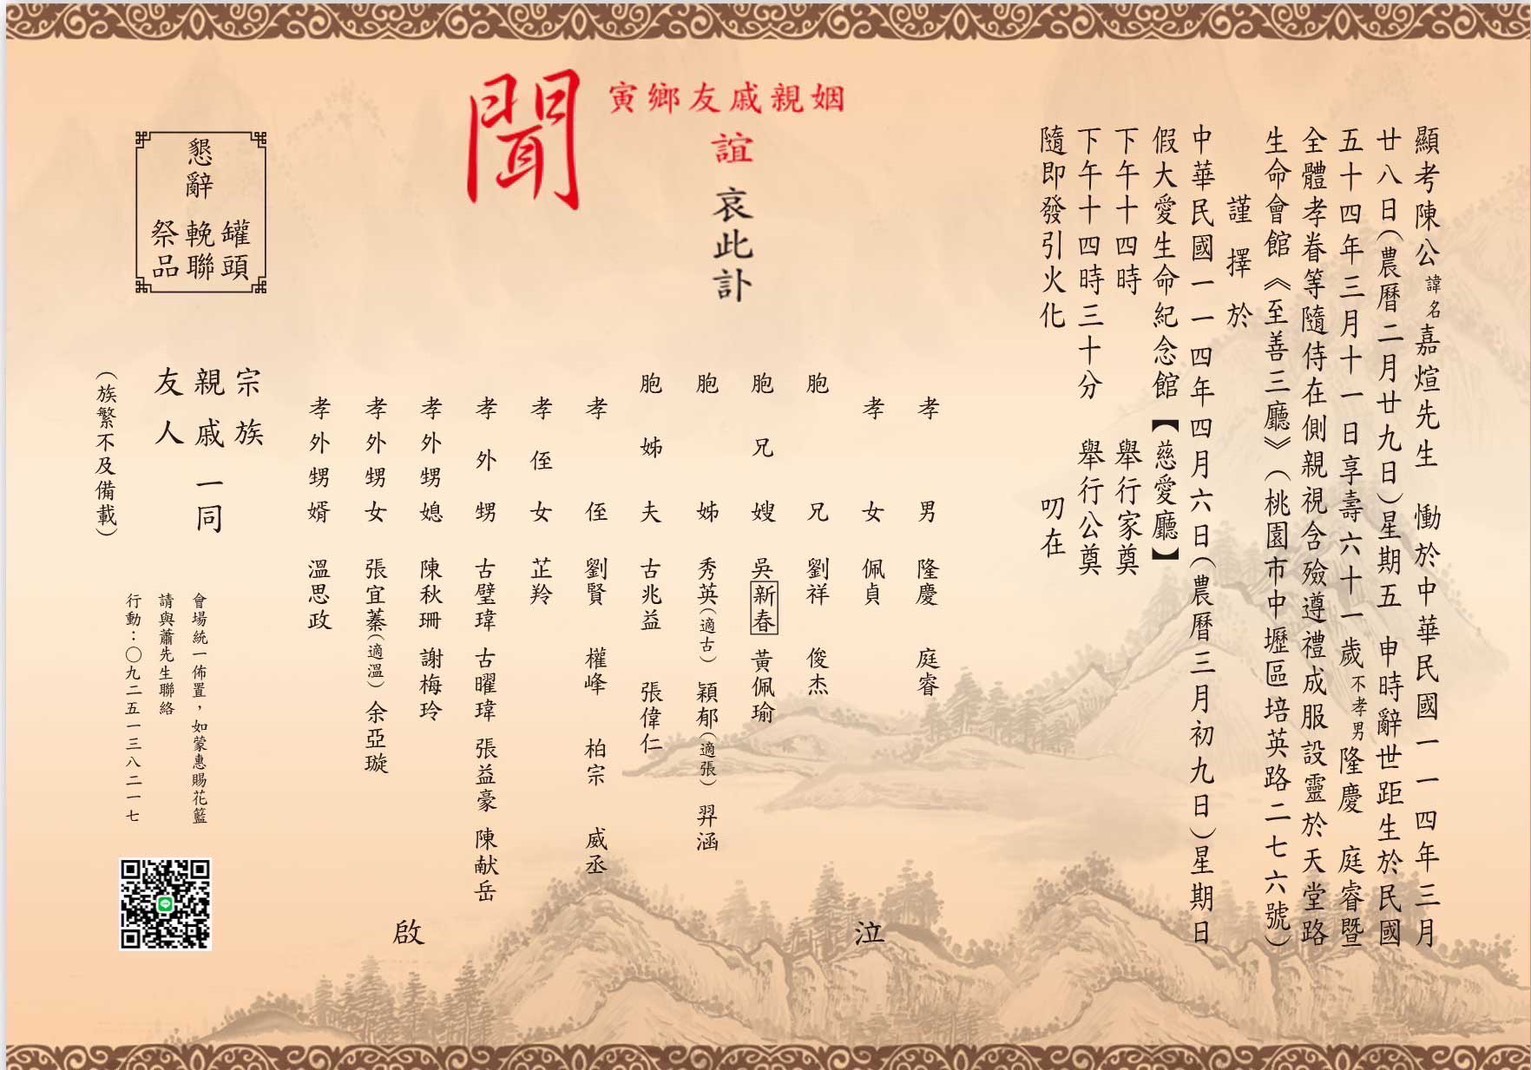 顯考陳公諱名嘉煊先生　慟於中華民國一一四年三月
廿八日(農曆二月廿九日)星期五　申時辭世距生於民國
五十四年三月十一日享壽六十一歲不孝男隆慶　庭睿暨
全體孝眷等隨侍在側親視含殮遵禮成服設靈於天堂路
生命會館《至善三廳》(桃園市中壢區培英路二七六號)
謹擇於
中華民國一一四年四月六日(農曆三月初九日)星期日
假大愛生命紀念館【慈愛廳】
下午十四時　舉行家奠
下午十四時三十分　舉行公奠
隨即發引火化　叨在
姻親戚友鄉寅
誼　哀此訃
聞
孝男　隆慶　庭睿
孝女　佩貞
胞兄　劉祥　俊杰
胞兄嫂　吳新春　黃佩瑜
胞姊　秀英(適古)　穎郁(適張)　羿涵
胞姊夫　古兆益　張偉仁
孝侄　劉賢　權峰　柏宗　威丞
孝侄女　芷羚
孝外甥　古璧瑋　古曜瑋　張益豪　陳献岳
孝外甥媳　陳秋珊　謝梅玲
孝外甥女　張宜蓁(適溫)　余亞璇
孝外甥婿　溫思政
泣
啟
宗族
親戚一同
友人
(族繁不及備載)
懇辭
罐頭
輓聯
祭品
會場統一佈置，如蒙惠賜花籃
請與蕭先生聯絡
行動：〇九二五一三八二一七